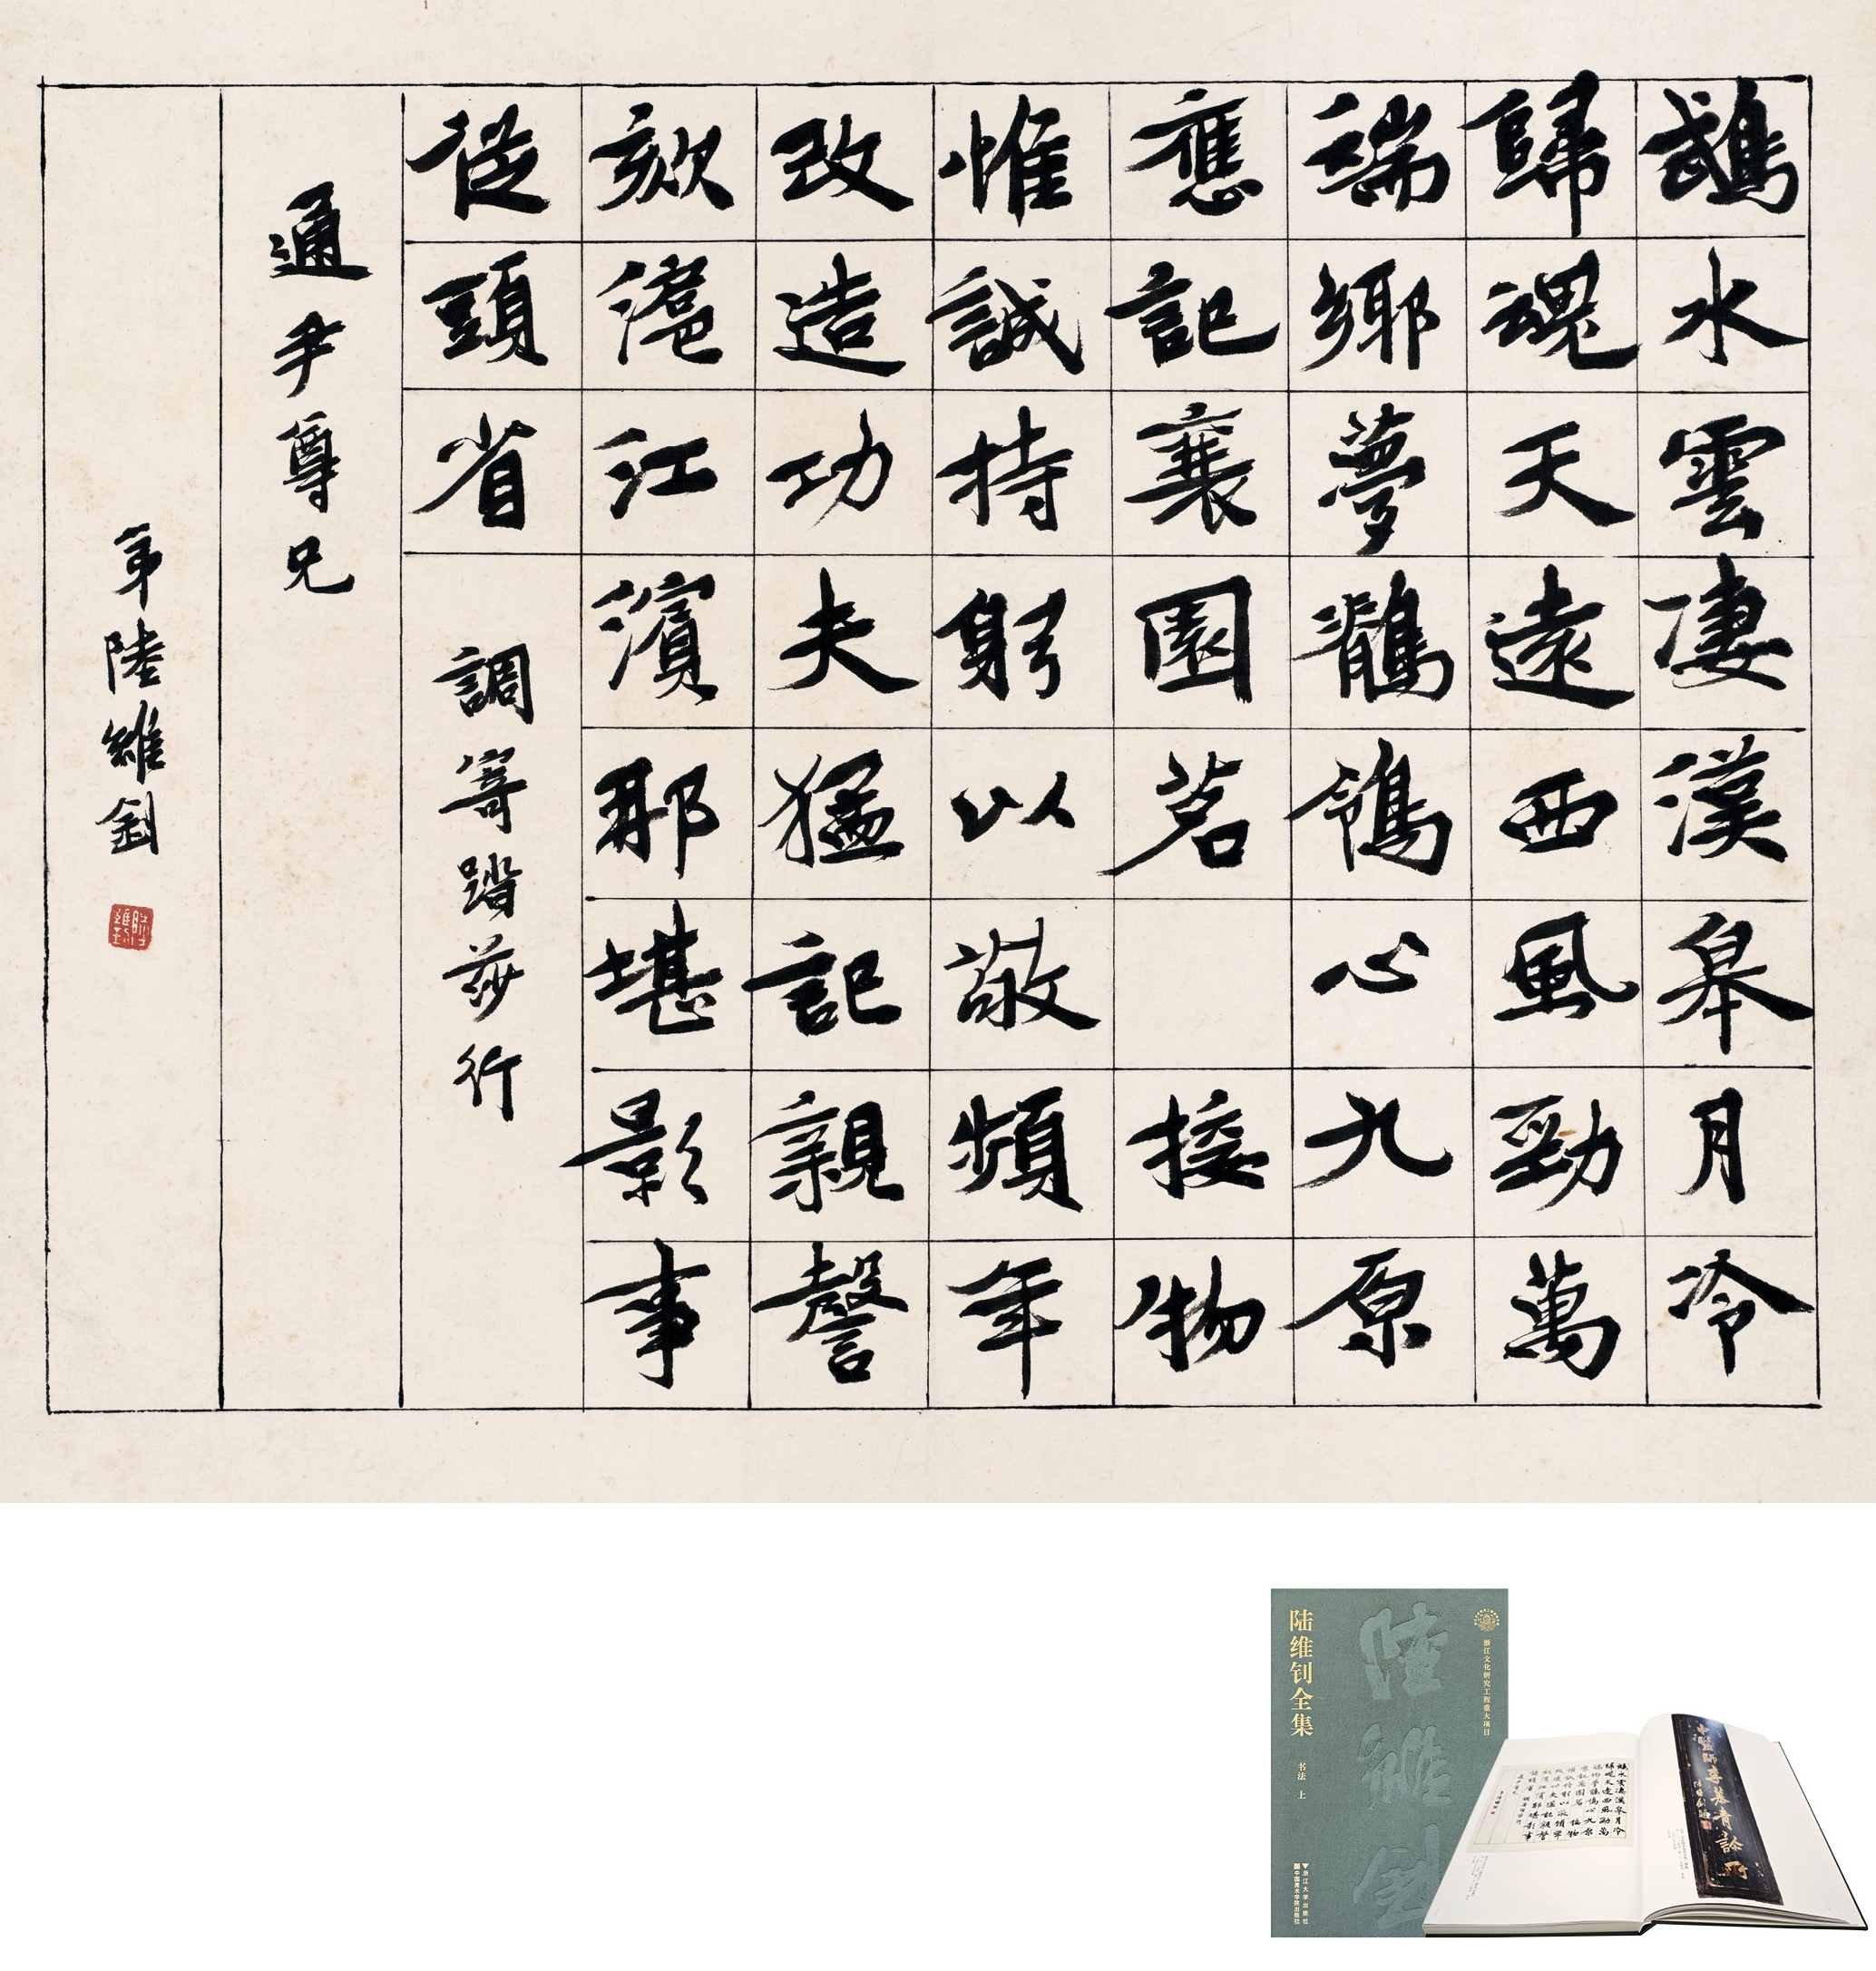 鵡水雲凄漢皋月冷
歸魂天遠西風勁萬
端鄉夢鶺鴒心九原
應記襄園茗 接物
惟誠持躬以敬頻年
改造功夫猛記親謦
欬滬江濱那堪影事
從頭省 調寄踏莎行
通尹尊兄
弟陸維釗
浙江文化研究工程重大项目
陸維釗
陆维钊全集 书法 上
浙江大学出版社
中国美术学院出版社